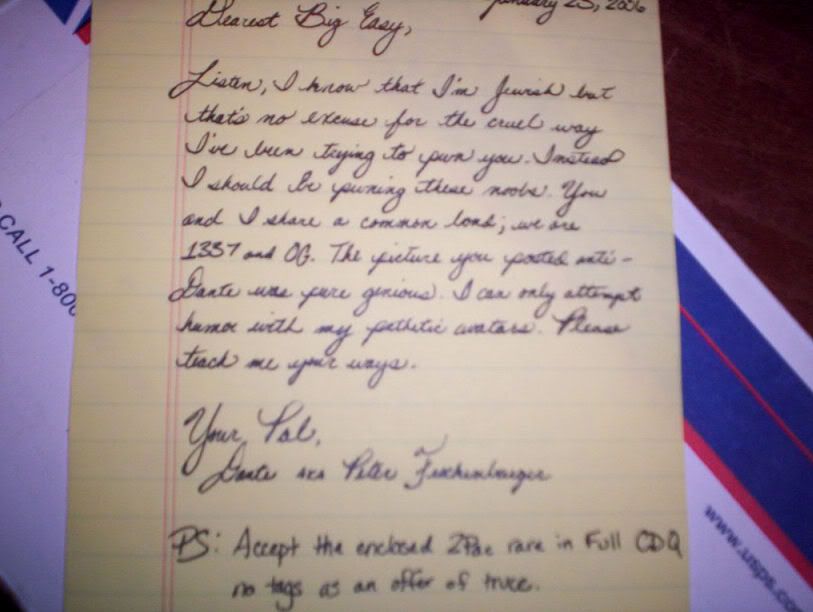 January 23, 2006
Dearest Big Easy,
Listen, I know that I'm Jewish but
that's no excuse for the cruel way
I've been trying to pwn you. Instead
I should be pwning these noobs. You
and I share a common bond; we are
1337 and OG. The picture you posted anti-
Dante was pure genious. I can only attempt
humor with my pathetic avatars. Please
teach me your ways.
Your Pal,
Dante aka Peter
PS: Accept the enclosed 2Pac rare in Full CDQ
no tags as an offer of truce.
CALL 1-800
www.usps.co